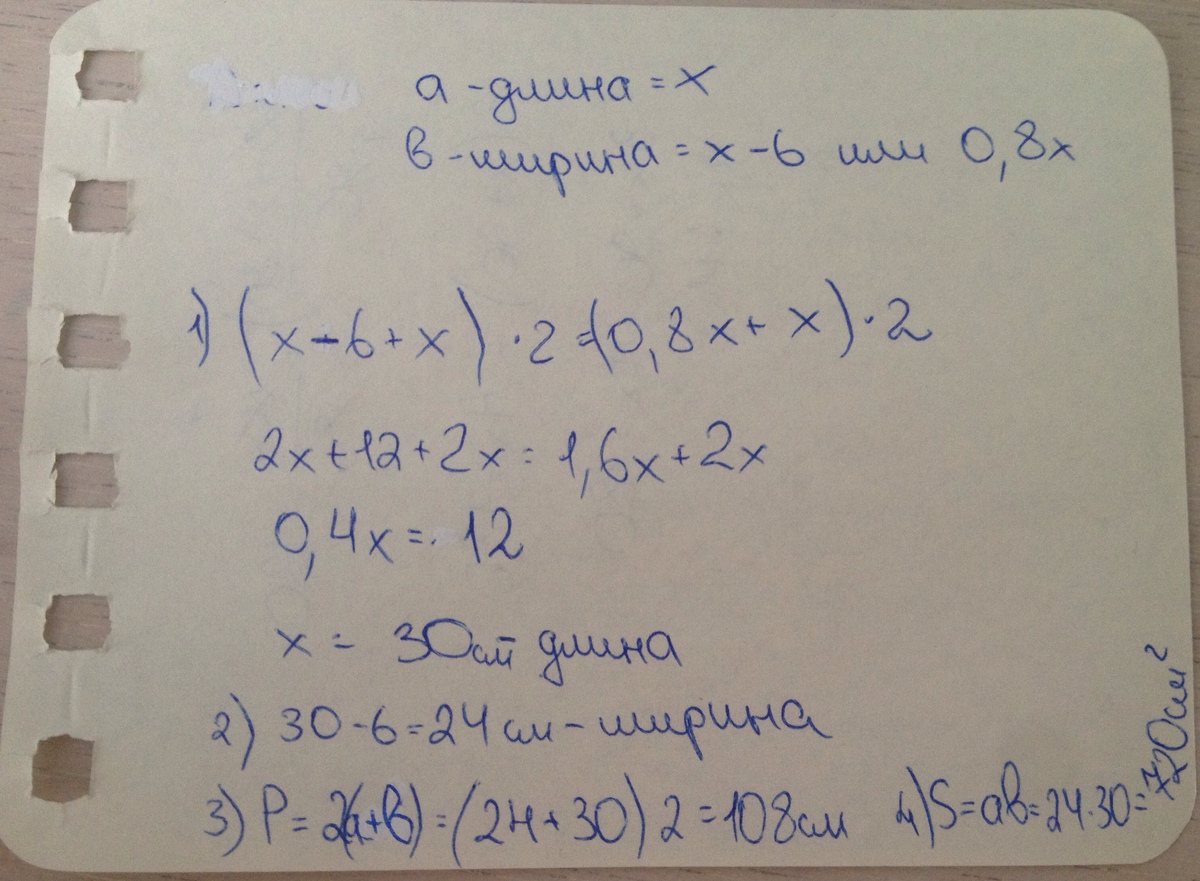 a - длина = x
в - ширина = x - 6 или 0,8x
1) (x - 6 + x) · 2 = (0,8x + x) · 2
2x + 12 + 2x = 1,6x + 2x
0,4x = 12
x = 30 см длина
2) 30 - 6 = 24 см - ширина
3) P = 2(a+в) = (24 + 30) 2 = 108 см
4) S = aв = 24·30 = 720 см²